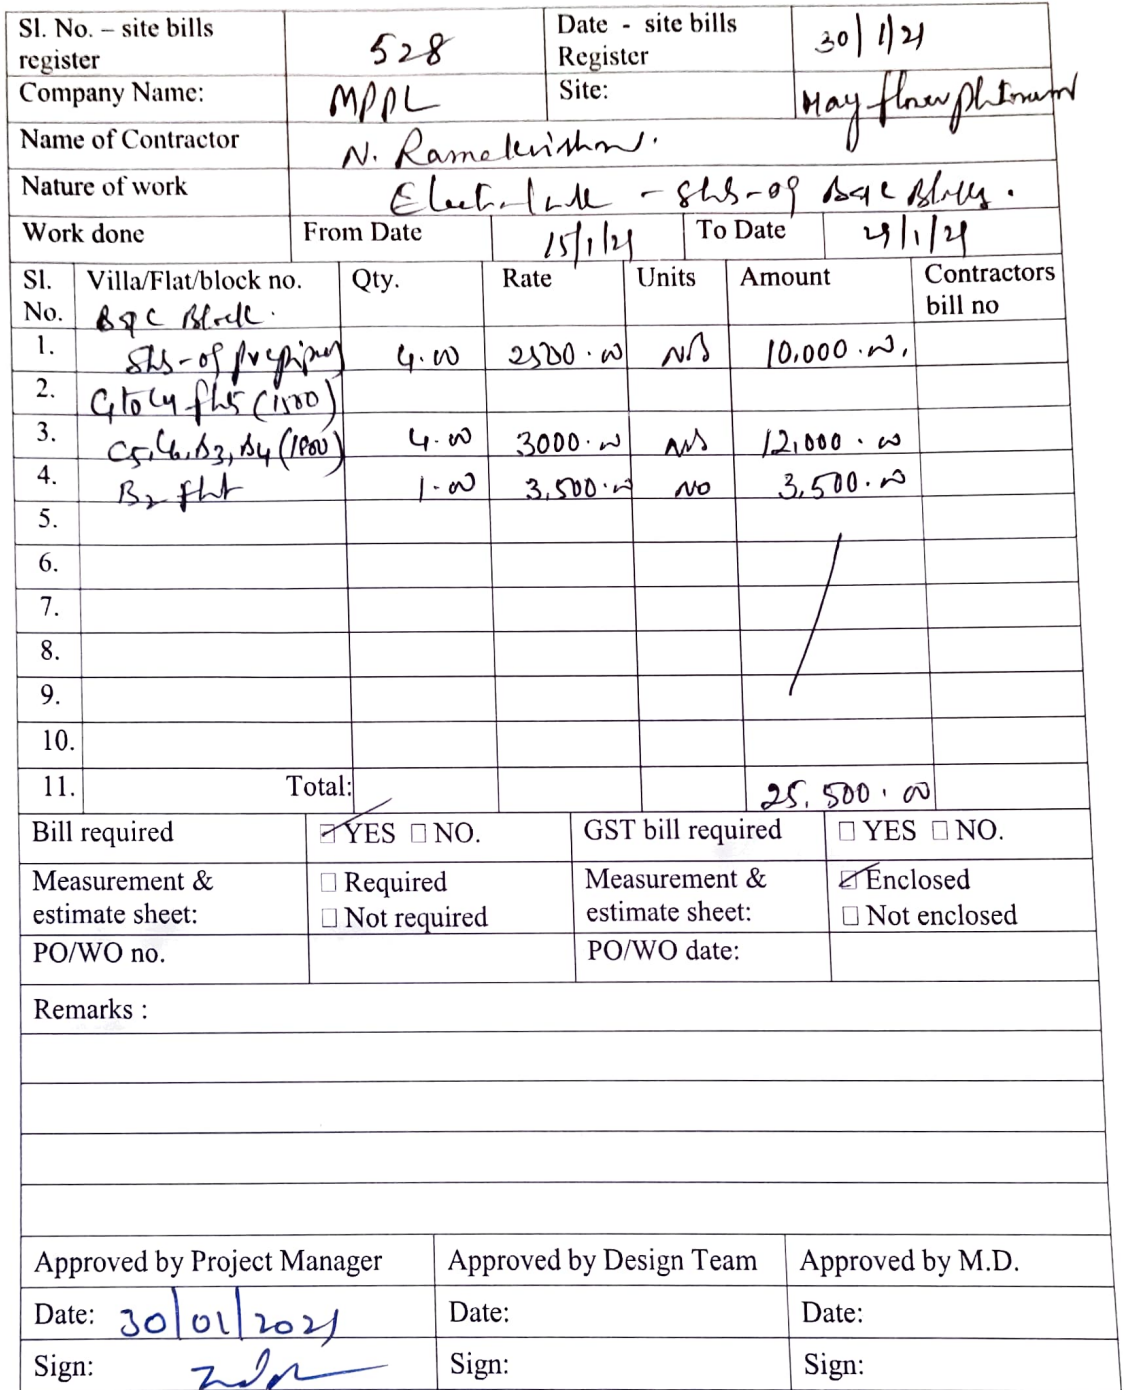 Sl. No. – site bills register 528 Date - site bills Register 30/1/21
Company Name: MPPL Site: May flower platinum
Name of Contractor N. Ramakrishna.
Nature of work - of B&C Block.
Work done From Date 15/1/21 To Date 29/1/21
Sl. No. Villa/Flat/block no. Qty. Rate Units Amount Contractors bill no
B&C Block.
1. of 4.00 2500.00 No 10,000.00.
2. C1 to C4 flats (1500)
3. C5, C6, B3, B4 (1800) 4.00 3000.00 No 12,000.00
4. B2 flat 1.00 3,500.00 No 3,500.00
5.
6.
7.
8.
9.
10.
11. Total: 25,500.00
Bill required YES NO. GST bill required YES NO.
Measurement & estimate sheet: Required Not required Measurement & estimate sheet: Enclosed Not enclosed
PO/WO no. PO/WO date:
Remarks :
Approved by Project Manager Approved by Design Team Approved by M.D.
Date: 30/01/2021 Date: Date:
Sign: Sign: Sign: